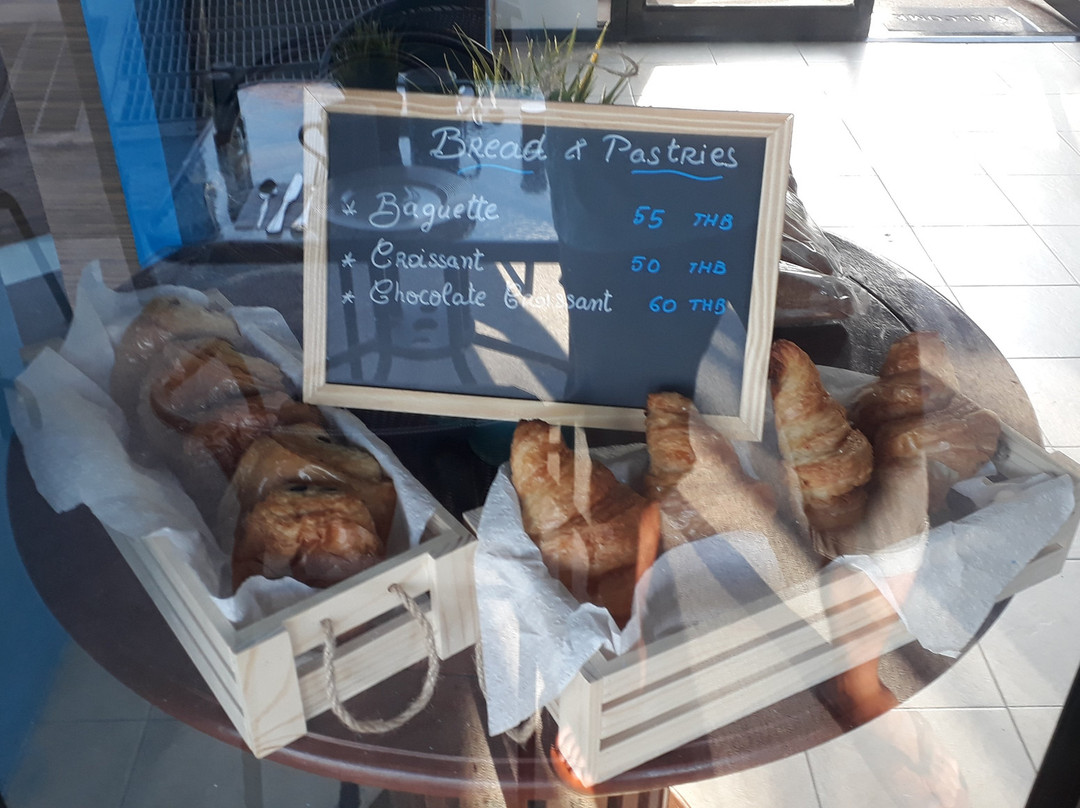 WELCOME
Bread & Pastries
* Baguette 55 THB
* Croissant 50 THB
* Chocolate Croissant 60 THB